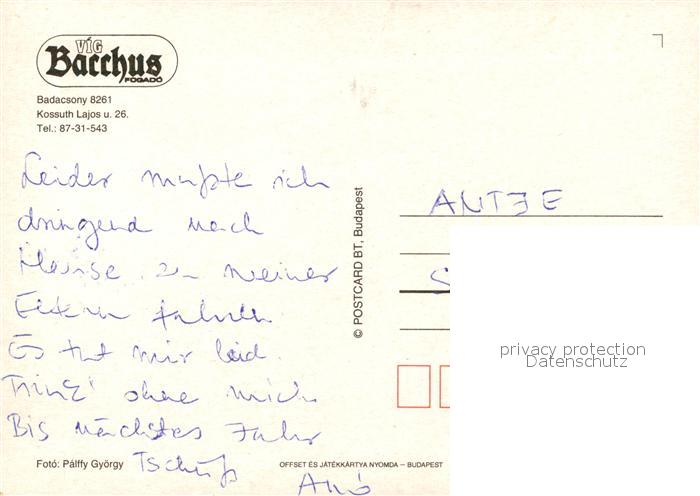 VÍG
Bacchus
FOGADÓ
Badacsony 8261
Kossuth Lajos u. 26.
Tel.: 87-31-543
Leider mußte ich
dringend nach
Hause zu meinen
Eltern fahren
Es tut mir leid.
Trink' ohne mich
Bis nächstes Jahr
Tschüß
© POSTCARD BT, Budapest
ANTJE
privacy protection
Datenschutz
Fotó: Pálffy György
OFFSET ÉS JÁTÉKKÁRTYA NYOMDA – BUDAPEST